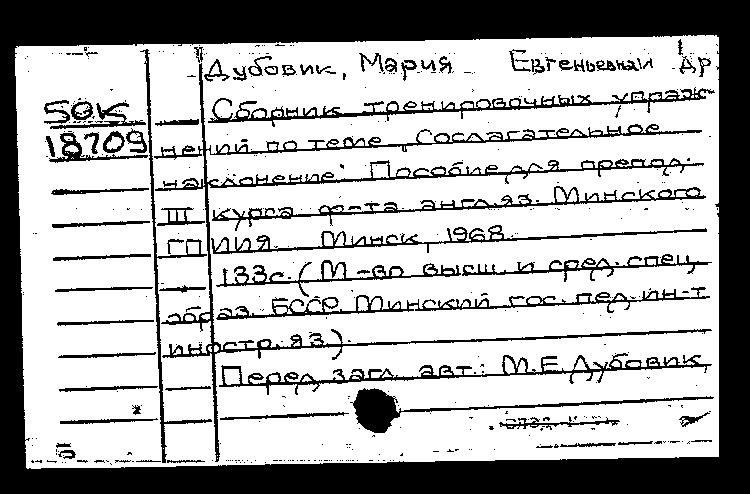 Дубовик, Мария Евгеньевна и др.
50к Сборник тренировочных упраж-
18709 нений по теме „Сослагательное
наклонение". Пособие для препод.
III курса ф-та англ. яз. Минского
ГПИИЯ. Минск, 1968.
133с. (М-во высш. и сред. спец.
образ. БССР. Минский гос. пед. ин-т
иностр. яз.).
Перед загл. авт.: М.Е. Дубовик,
Б